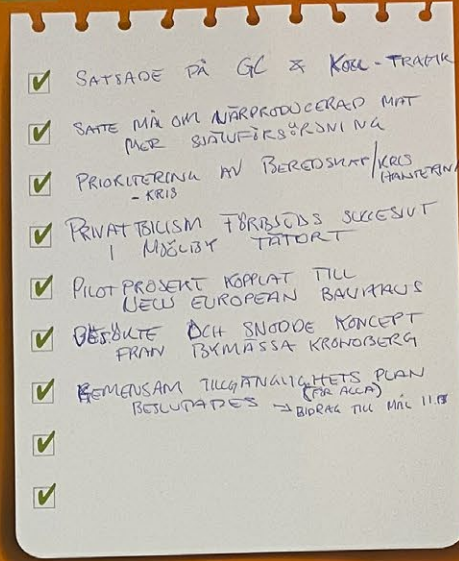 SATSADE PÅ GC & KOLL-TRAFIK
SATTE MÅL OM NÄRPRODUCERAD MAT
MER SJÄLVFÖRSÖRJNING
PRIORITERING AV BEREDSKAP/KRIS
HANTERIN
- KRIS
PRIVATBILISM FÖRBJÖDS SUCCESIVT
I MJÖLBY TÄTORT
PILOTPROJEKT KOPPLAT TILL
NEW EUROPEAN BAUHAUS
BESÖKTE OCH SNODDE KONCEPT
FRÅN BYMÄSSA KRONOBERG
GEMENSAM TILLGÄNGLIGHETS PLAN
(FÖR ALLA)
BESLUTADES → BIDRAG TILL MÅL